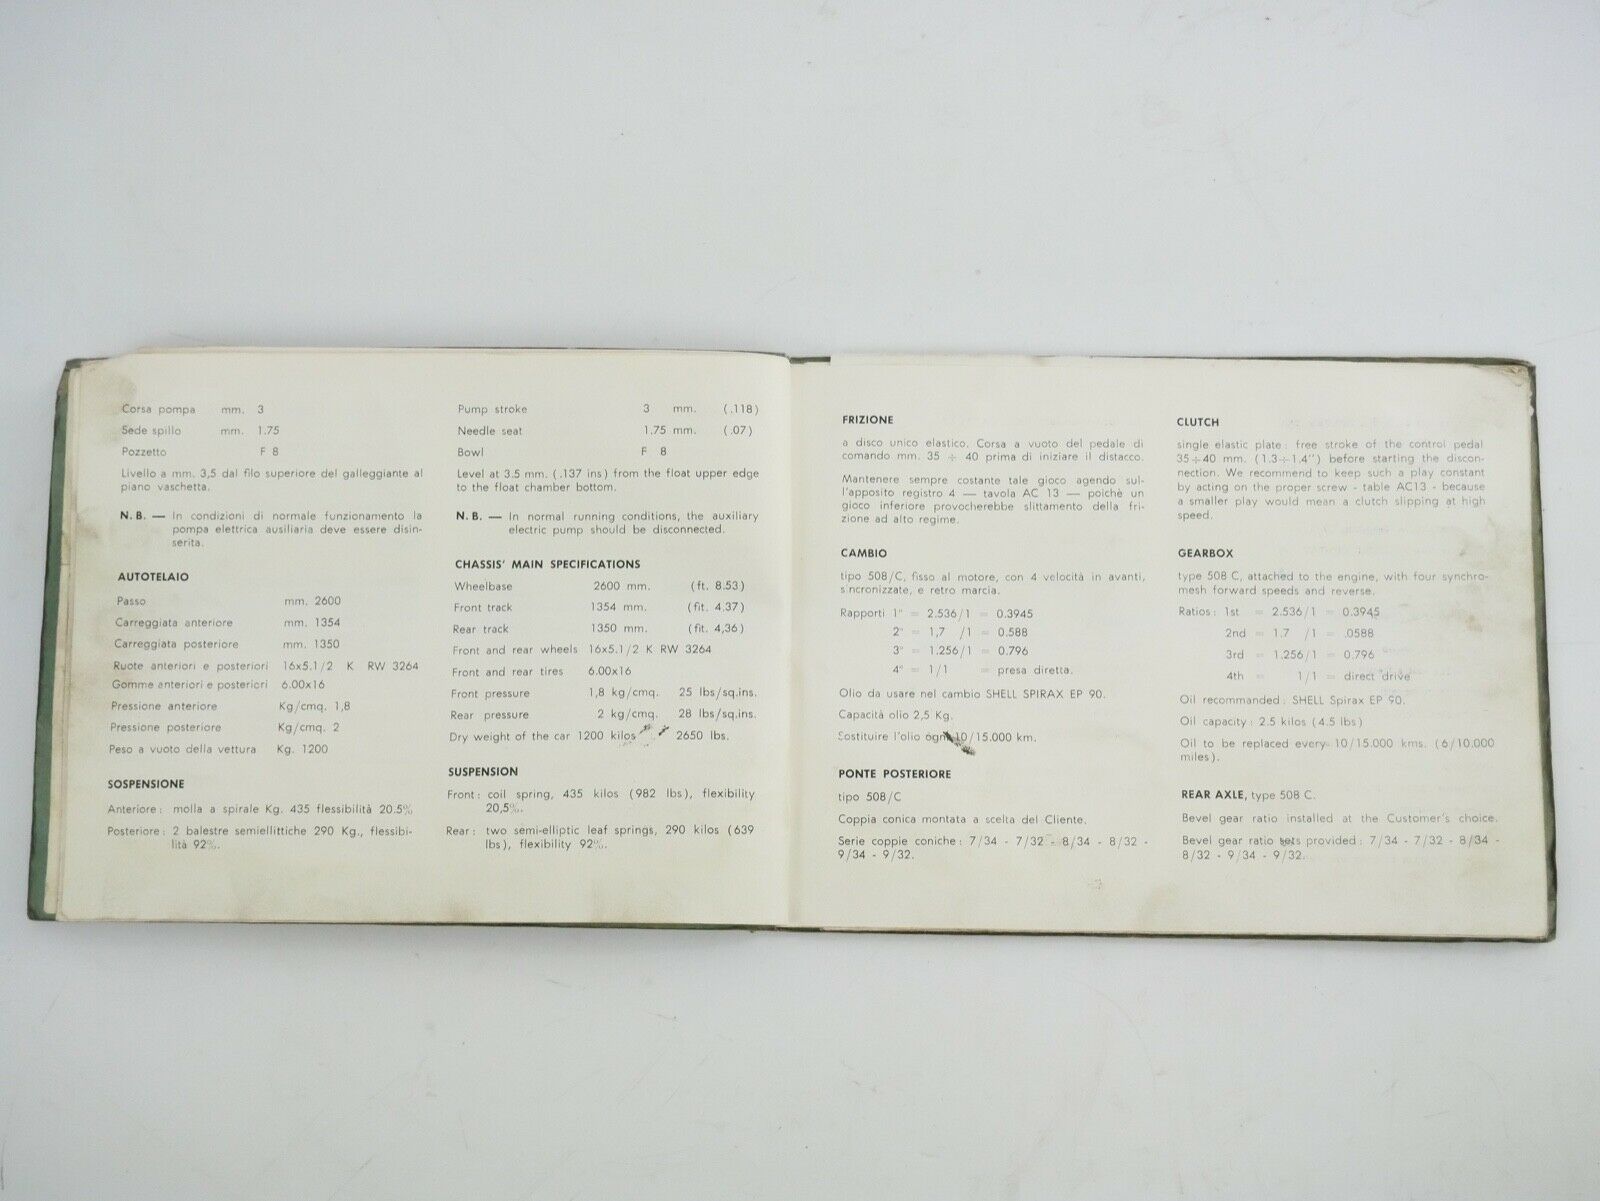 Corsa pompa mm. 3
Sede spillo mm. 1.75
Pozzetto F 8
Livello a mm. 3,5 dal filo superiore del galleggiante al
piano vaschetta.
N. B. — In condizioni di normale funzionamento la
pompa elettrica ausiliaria deve essere disin-
serita.
AUTOTELAIO
Passo mm. 2600
Carreggiata anteriore mm. 1354
Carreggiata posteriore mm. 1350
Ruote anteriori e posteriori 16x5.1/2 K RW 3264
Gomme anteriori e posteriori 6.00x16
Pressione anteriore Kg/cmq. 1,8
Pressione posteriore Kg/cmq. 2
Peso a vuoto della vettura Kg. 1200
SOSPENSIONE
Anteriore: molla a spirale Kg. 435 flessibilità 20.5%
Posteriore: 2 balestre semiellittiche 290 Kg., flessibi-
lità 92%.
Pump stroke 3 mm. (.118)
Needle seat 1.75 mm. (.07)
Bowl F 8
Level at 3.5 mm. (.137 ins) from the float upper edge
to the float chamber bottom.
N. B. — In normal running conditions, the auxiliary
electric pump should be disconnected.
CHASSIS' MAIN SPECIFICATIONS
Wheelbase 2600 mm. (ft. 8.53)
Front track 1354 mm. (fit. 4,37)
Rear track 1350 mm. (fit. 4,36)
Front and rear wheels 16x5.1/2 K RW 3264
Front and rear tires 6.00x16
Front pressure 1,8 kg/cmq. 25 lbs/sq.ins.
Rear pressure 2 kg/cmq. 28 lbs/sq.ins.
Dry weight of the car 1200 kilos 2650 lbs.
SUSPENSION
Front: coil spring, 435 kilos (982 lbs), flexibility
20,5%.
Rear: two semi-elliptic leaf springs, 290 kilos (639
lbs), flexibility 92%.
FRIZIONE
a disco unico elastico. Corsa a vuoto del pedale di
comando mm. 35 ÷ 40 prima di iniziare il distacco.
Mantenere sempre costante tale gioco agendo sul-
l'apposito registro 4 — tavola AC 13 — poichè un
gioco inferiore provocherebbe slittamento della fri-
zione ad alto regime.
CAMBIO
tipo 508/C, fisso al motore, con 4 velocità in avanti,
sincronizzate, e retro marcia.
Rapporti 1ª = 2.536/1 = 0.3945
2ª = 1,7 /1 = 0.588
3ª = 1.256/1 = 0.796
4ª = 1/1 = presa diretta.
Olio da usare nel cambio SHELL SPIRAX EP 90.
Capacità olio 2,5 Kg.
Sostituire l'olio ogni 10/15.000 km.
PONTE POSTERIORE
tipo 508/C
Coppia conica montata a scelta del Cliente.
Serie coppie coniche: 7/34 - 7/32 - 8/34 - 8/32 -
9/34 - 9/32.
CLUTCH
single elastic plate: free stroke of the control pedal
35÷40 mm. (1.3÷1.4") before starting the discon-
nection. We recommend to keep such a play constant
by acting on the proper screw - table AC13 - because
a smaller play would mean a clutch slipping at high
speed.
GEARBOX
type 508 C, attached to the engine, with four synchro-
mesh forward speeds and reverse.
Ratios: 1st = 2.536/1 = 0.3945
2nd = 1.7 /1 = .0588
3rd = 1.256/1 = 0.796
4th = 1/1 = direct drive
Oil recommanded: SHELL Spirax EP 90.
Oil capacity: 2.5 kilos (4.5 lbs)
Oil to be replaced every 10/15.000 kms. (6/10.000
miles).
REAR AXLE, type 508 C.
Bevel gear ratio installed at the Customer's choice.
Bevel gear ratio sets provided: 7/34 - 7/32 - 8/34 -
8/32 - 9/34 - 9/32.